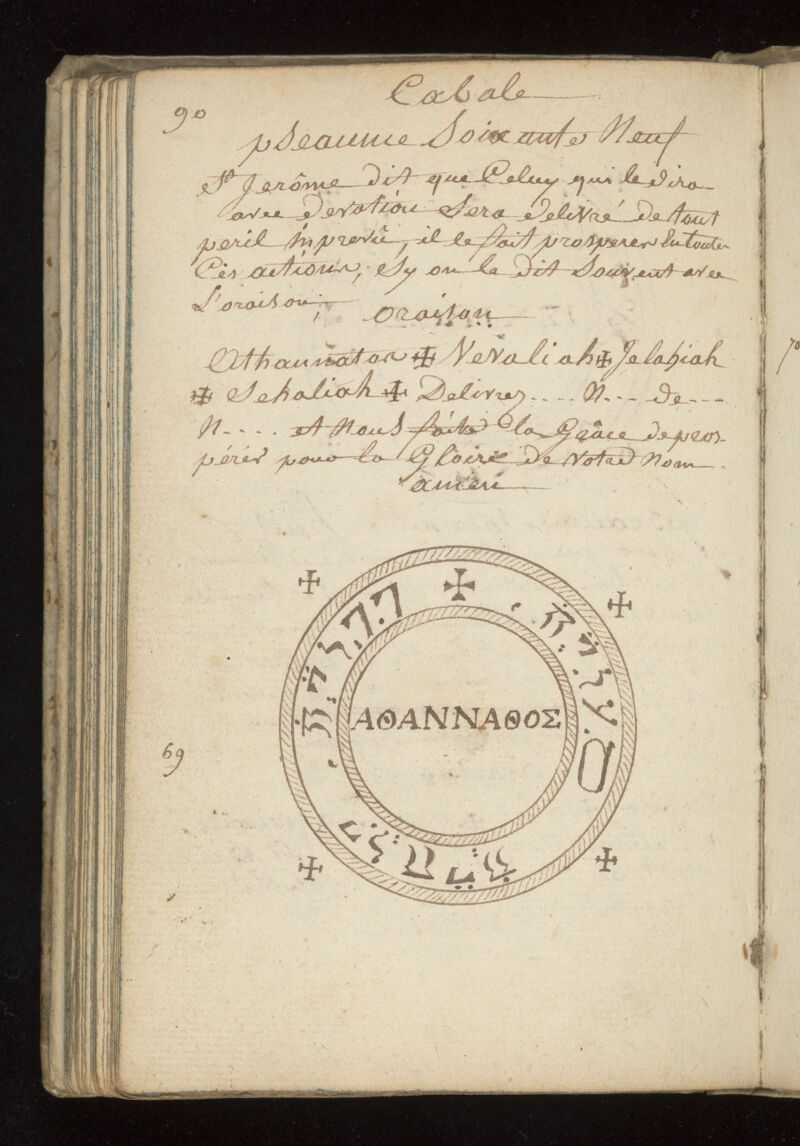 Cabale
90
pseaume Soixante Neuf
St Jerôme dit que Celuy qui le dira
avec devotion Sera delivré de tout
peril imprevû, il le fait prosperer En toute
Ces actions, Sy on le dit Souvent avec
L'oraison;
oraison
Athannatos ✠ Nevaliah ✠ Jelahiah
✠ Sehaliah ✠ Delivrez .... N... de ---
N.... et Nous faite la Grâce de pros-
pérér pour la Gloire de Votre Nom.
amen
ΑΘΑΝΝΑΘΟΣ
69
70